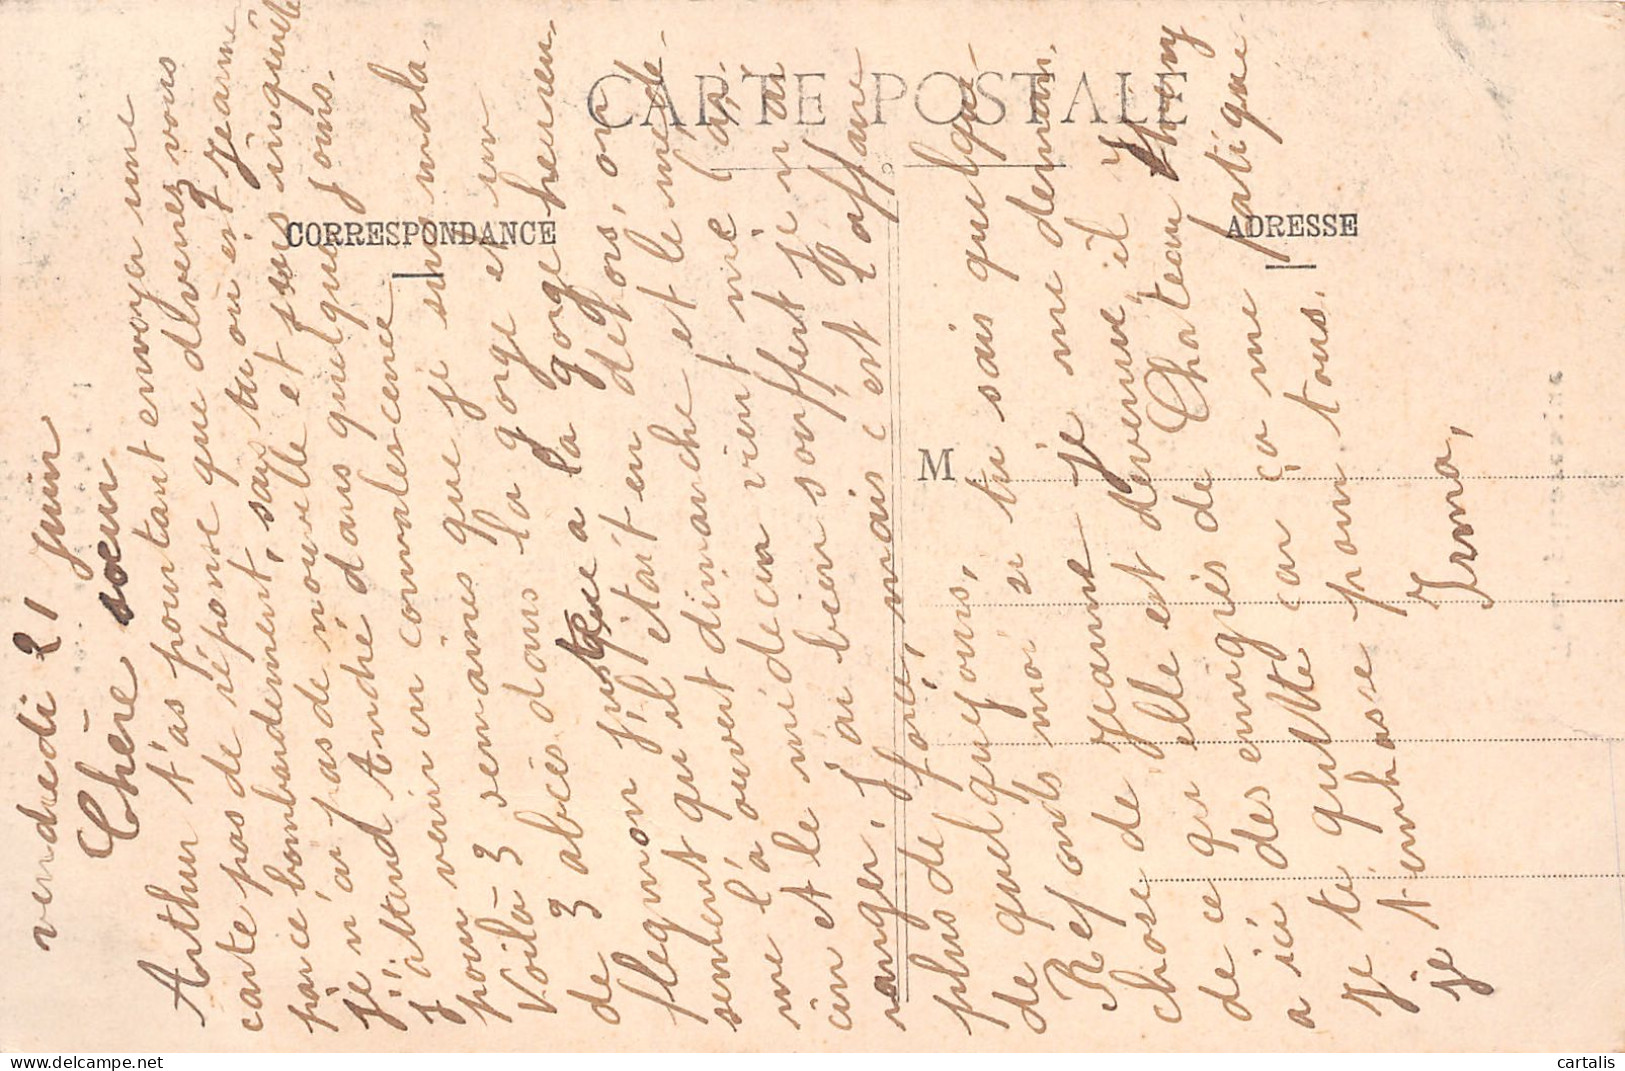 CARTE POSTALE
CORRESPONDANCE
ADRESSE
M
vendredi 21 juin
Chère soeur
Arthur t'as pourtant envoya une
carte pas de réponse que devenez vous
par ce bombardement, sais tu où est Jeanne
je n'ai pas de nouvelle et suis inquiète
j'attend André dans quelques jours.
pour venir en convalescence
Voilà 3 semaines que je suis mala-
de 3 abcès dans la gorge et un
flegmon juste a la gorge heureu-
sement qu'il était en dehors, on
me l'a ouvert dimanche et le méde-
cin et le médecin vient me l'arr-
anger, j'ai bien souffert je n'ai
plus de force, mais c'est l'affaire
de quelques jours,
Réponds moi si tu sais quelque
chose de Jeanne je me deman
de ce qu'elle est devenue, il y
a ici des émigrés de Chateau Thiery
Je te quitte car ça me fatigue
je t'embrasse pour tous.
Irma,
cartalis